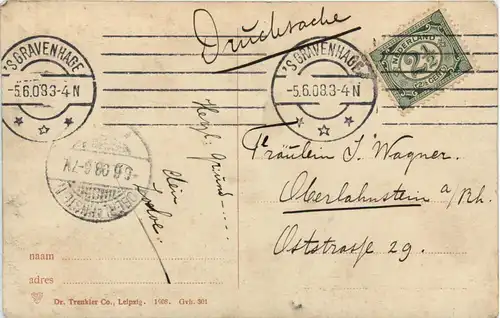 Drucksache
'S GRAVENHAGE
-5.6.08.3-4N
'S GRAVENHAGE
-5.6.08.3-4N
NEDERLAND
2½
CENT
Herzl. Gruss
Dein
Fräulein J. Wagner.
Oberlahnstein a/Rh.
Oststrasse 29.
naam
adres
Dr. Trenkler Co., Leipzig. 1908. Gvh. 301